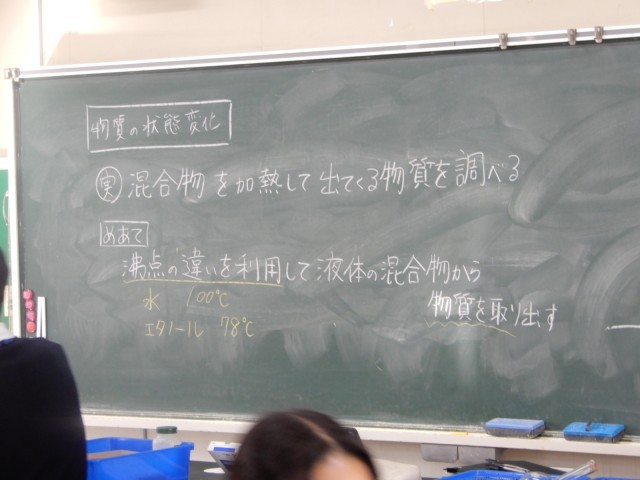 物質の状態変化
実 混合物を加熱して出てくる物質を調べる
めあて
沸点の違いを利用して液体の混合物から
物質を取り出す
水 100℃
エタノール 78℃